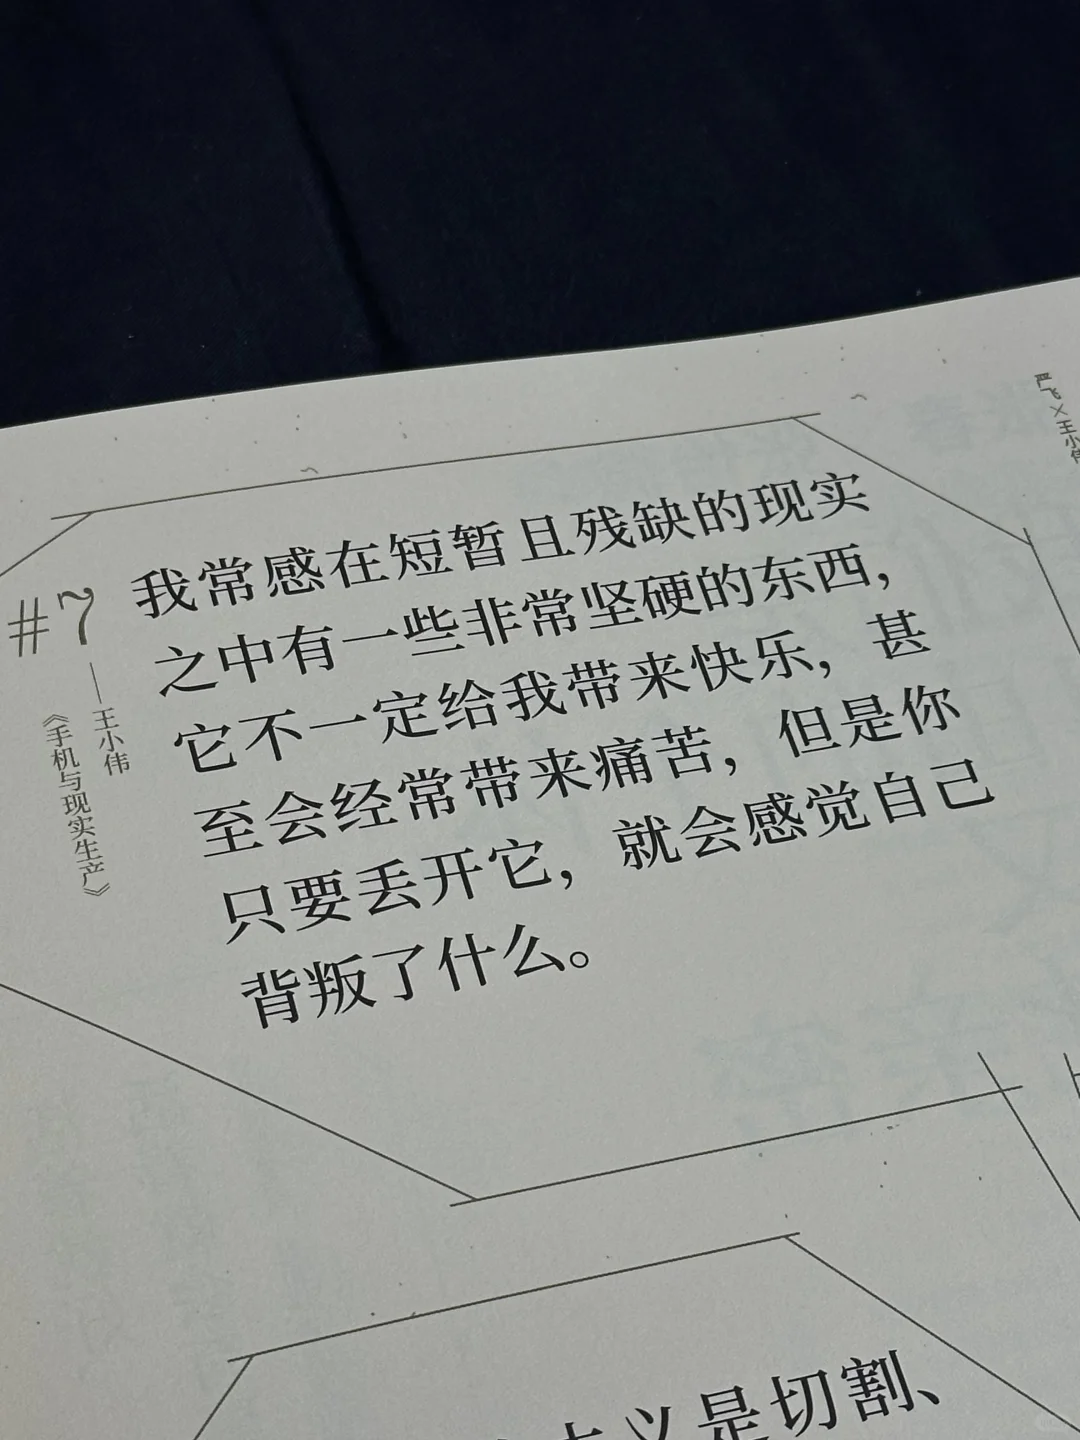 严飞×王小伟
#7
——王小伟
《手机与现实生产》
我常感在短暂且残缺的现实
之中有一些非常坚硬的东西，
它不一定给我带来快乐，甚
至会经常带来痛苦，但是你
只要丢开它，就会感觉自己
背叛了什么。
主义是切割、